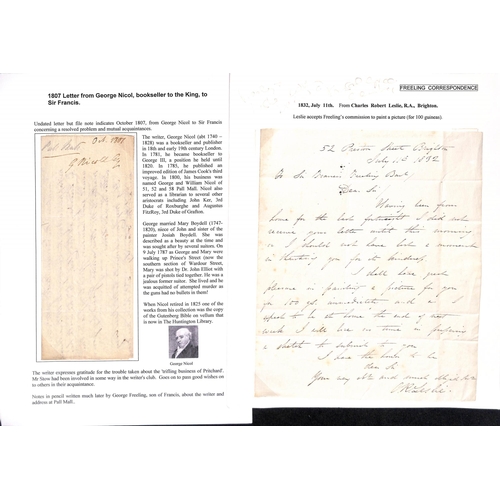 1807 Letter from George Nicol, bookseller to the King, to
Sir Francis.
Undated letter but file note indicates October 1807, from George Nicol to Sir Francis
concerning a resolved problem and mutual acquaintances.
Oct. 1807
Pall Mall
G Nicoll Esq
The writer, George Nicol (abt 1740 –
1828) was a bookseller and publisher
in 18th and early 19th century London.
In 1781, he became bookseller to
George III, a position he held until
1820. In 1785, he published an
improved edition of James Cook's third
voyage. In 1800, his business was
named George and William Nicol of
51, 52 and 58 Pall Mall. Nicol also
served as a librarian to several other
aristocrats including John Ker, 3rd
Duke of Roxburghe and Augustus
FitzRoy, 3rd Duke of Grafton.
George married Mary Boydell (1747-
1820), niece of John and sister of the
painter Josiah Boydell. She was
described as a beauty at the time and
was sought after by several suitors. On
9 July 1787 as George and Mary were
walking up Prince's Street (now the
southern section of Wardour Street,
Mary was shot by Dr. John Elliot with
a pair of pistols tied together. He was a
jealous former suitor. She lived and he
was acquitted of attempted murder as
the guns had no bullets in them!
When Nicol retired in 1825 one of the
works from his collection was the copy
of the Gutenberg Bible on vellum that
is now in The Huntington Library.
George Nicol
The writer expresses gratitude for the trouble taken about the 'trifling business of Pritchard'.
Mr Stow had been involved in some way in the writer's club. Goes on to pass good wishes on
to others in their acquaintance.
Notes in pencil written much later by George Freeling, son of Francis, about the writer and
address at Pall Mall.
FREELING CORRESPONDENCE
1832, July 11th. From Charles Robert Leslie, R.A., Brighton.
Leslie accepts Freeling's commission to paint a picture (for 100 guineas).
52 Preston Street Brighton
July 1832
To Sir Francis Freeling Bart.
Dear Sir
Having been from
home for the last fortnight I did not
receive your letter until this morning
or I should not have lost a moment
in thanking you for its
I shall have great
pleasure in painting a picture for you
for 100 gs. and as I
expect to be at home the end of next
week I will lose no time in preparing
a sketch to submit to you
I have the honor to be
Dear Sir
Your very and much obliged
C R Leslie